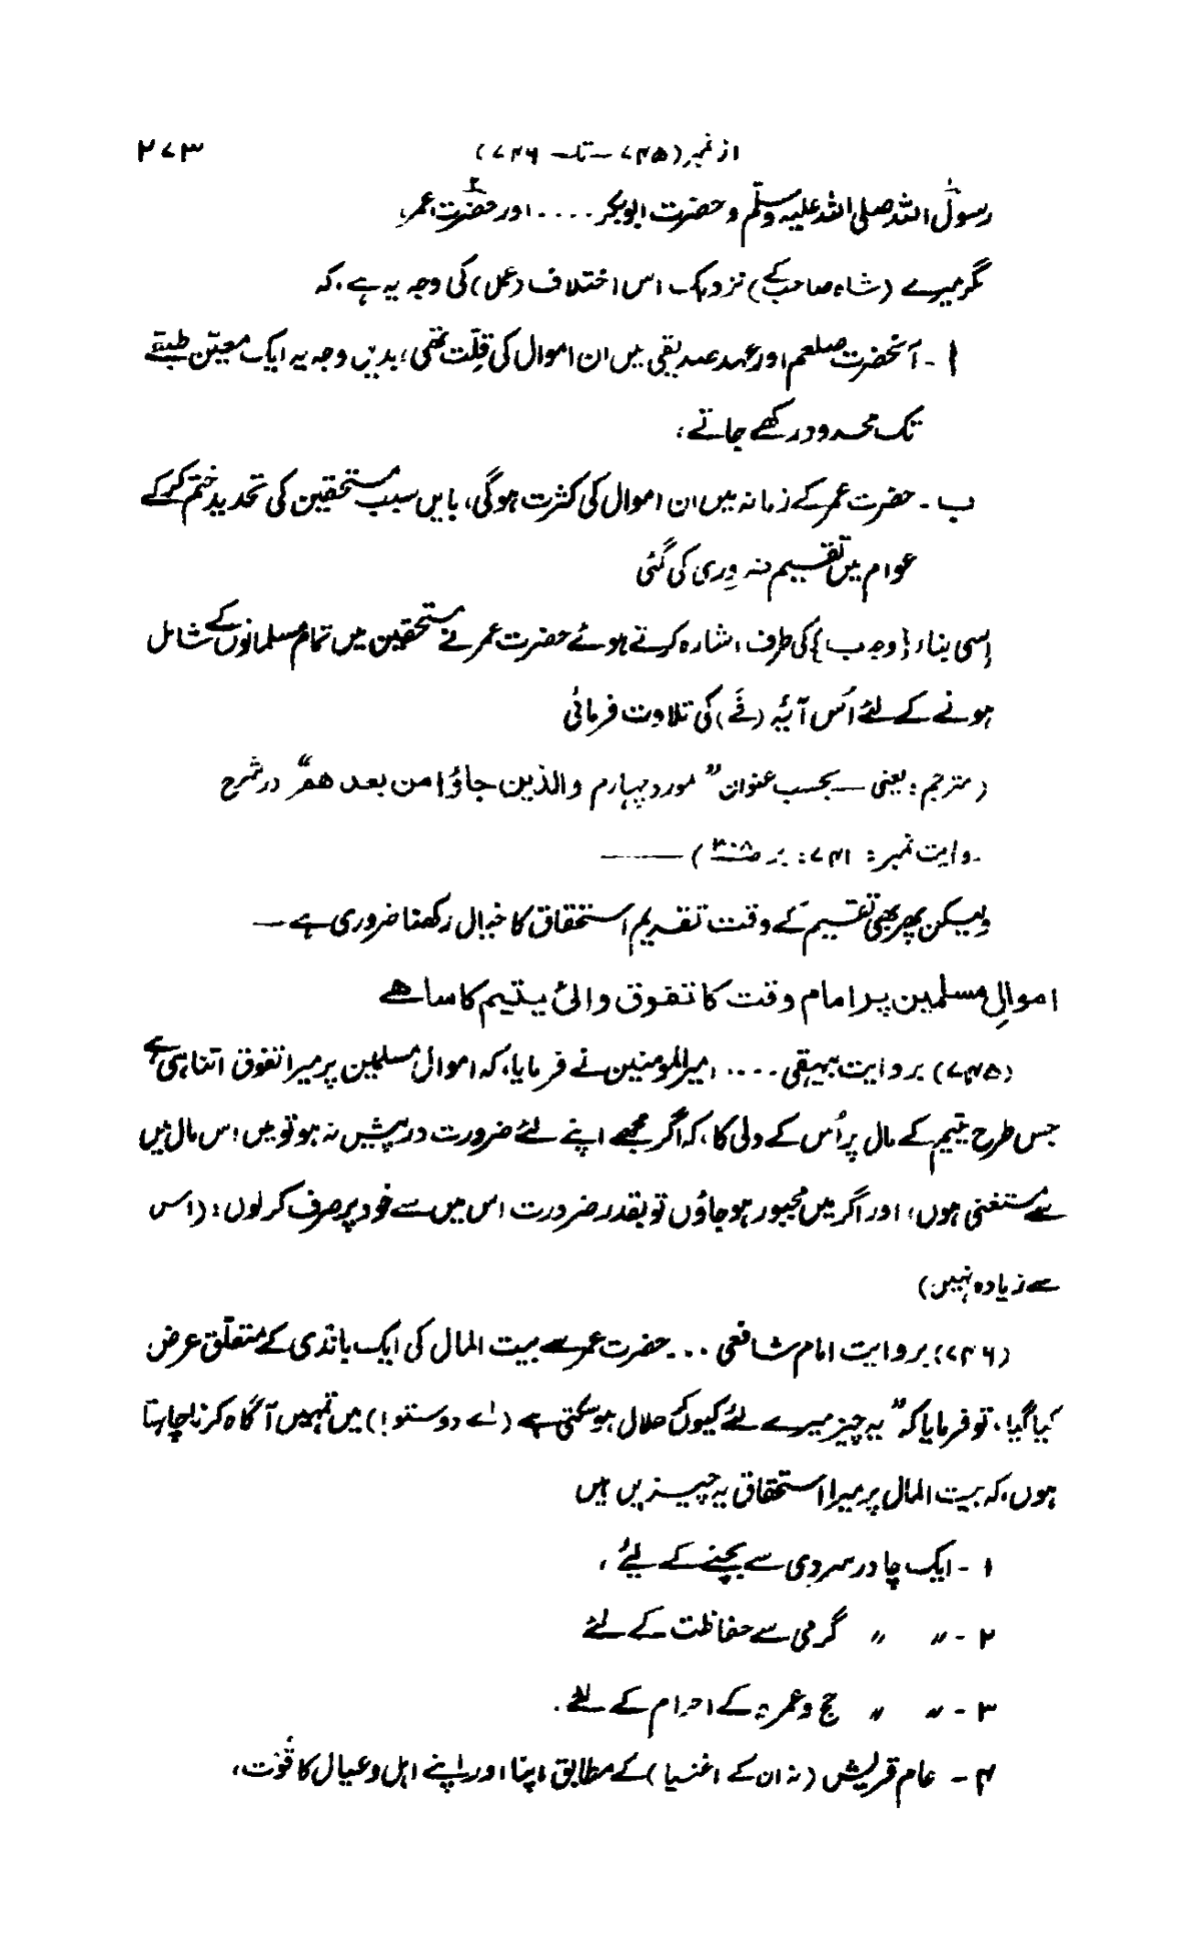 از نمبر (۷۴۵ — تا — ۷۴۶) ۲۷۳
رسول اللہ صلی اللہ علیہ وسلم و حضرت ابوبکر .... اور حضرت عمر؛
مگر میرے (شاہ صاحب کے) نزدیک اس اختلاف (عمل) کی وجہ یہ ہے، کہ
ا - آنحضرت صلعم اور عہد صدیقی میں ان اموال کی قلّت تھی؛ بدیں وجہ یہ ایک معیّن طبقے
تک محدود رکھے جاتے؛
ب - حضرت عمر کے زمانہ میں ان اموال کی کثرت ہوگی، بایں سبب مستحقین کی تحدید ختم کر کے
عوام میں تقسیم ضروری کی گئی
اِسی بناء {وجہ ب} کی طرف اشارہ کرتے ہوئے حضرت عمر نے مستحقین میں تمام مسلمانوں کے شامل
ہونے کے لئے اُس آیۂ (فَے) کی تلاوت فرمائی
(مترجم: یعنی — بحسب عنوان ”مورد چہارم والذین جاؤا من بعد ھم“ در شرح
روایت نمبر: ۷۴۱: بر ص۳۰۸) ——
ولیکن پھر بھی تقسیم کے وقت تقدیم استحقاق کا خیال رکھنا ضروری ہے —
اموالِ مسلمین پر امام وقت کا تفوق والیٔ یتیم کا سا ہے
(۷۴۵) بروایت بیہقی .... امیرالمومنین نے فرمایا، کہ اموال مسلمین پر میرا تفوق اتنا ہی ہے
جس طرح یتیم کے مال پر اُس کے ولی کا، کہ اگر مجھے اپنے لئے ضرورت درپیش نہ ہو تو میں اس مال میں
سے مستغنی ہوں؛ اور اگر میں مجبور ہو جاؤں تو بقدر ضرورت اس میں سے خود پر صرف کر لوں؛ (اس
سے زیادہ نہیں)
(۷۴۶) بروایت امام شافعی ... حضرت عمر سے بیت المال کی ایک باندی کے متعلّق عرض
کیا گیا، تو فرمایا کہ ”یہ چیز میرے لئے کیوں کر حلال ہو سکتی ہے (اے دوستو!) میں تمہیں آگاہ کرنا چاہتا
ہوں، کہ بیت المال پر میرا استحقاق یہ چیزیں ہیں
۱ - ایک چادر سردی سے بچنے کے لیئے،
۲ - ,, ,, گرمی سے حفاظت کے لئے
۳ - ,, ,, حج و عمرہ کے احرام کے لئے.
۴ - عام قریش (نہ ان کے اغنیا) کے مطابق اپنا اور اپنے اہل و عیال کا قُوت،